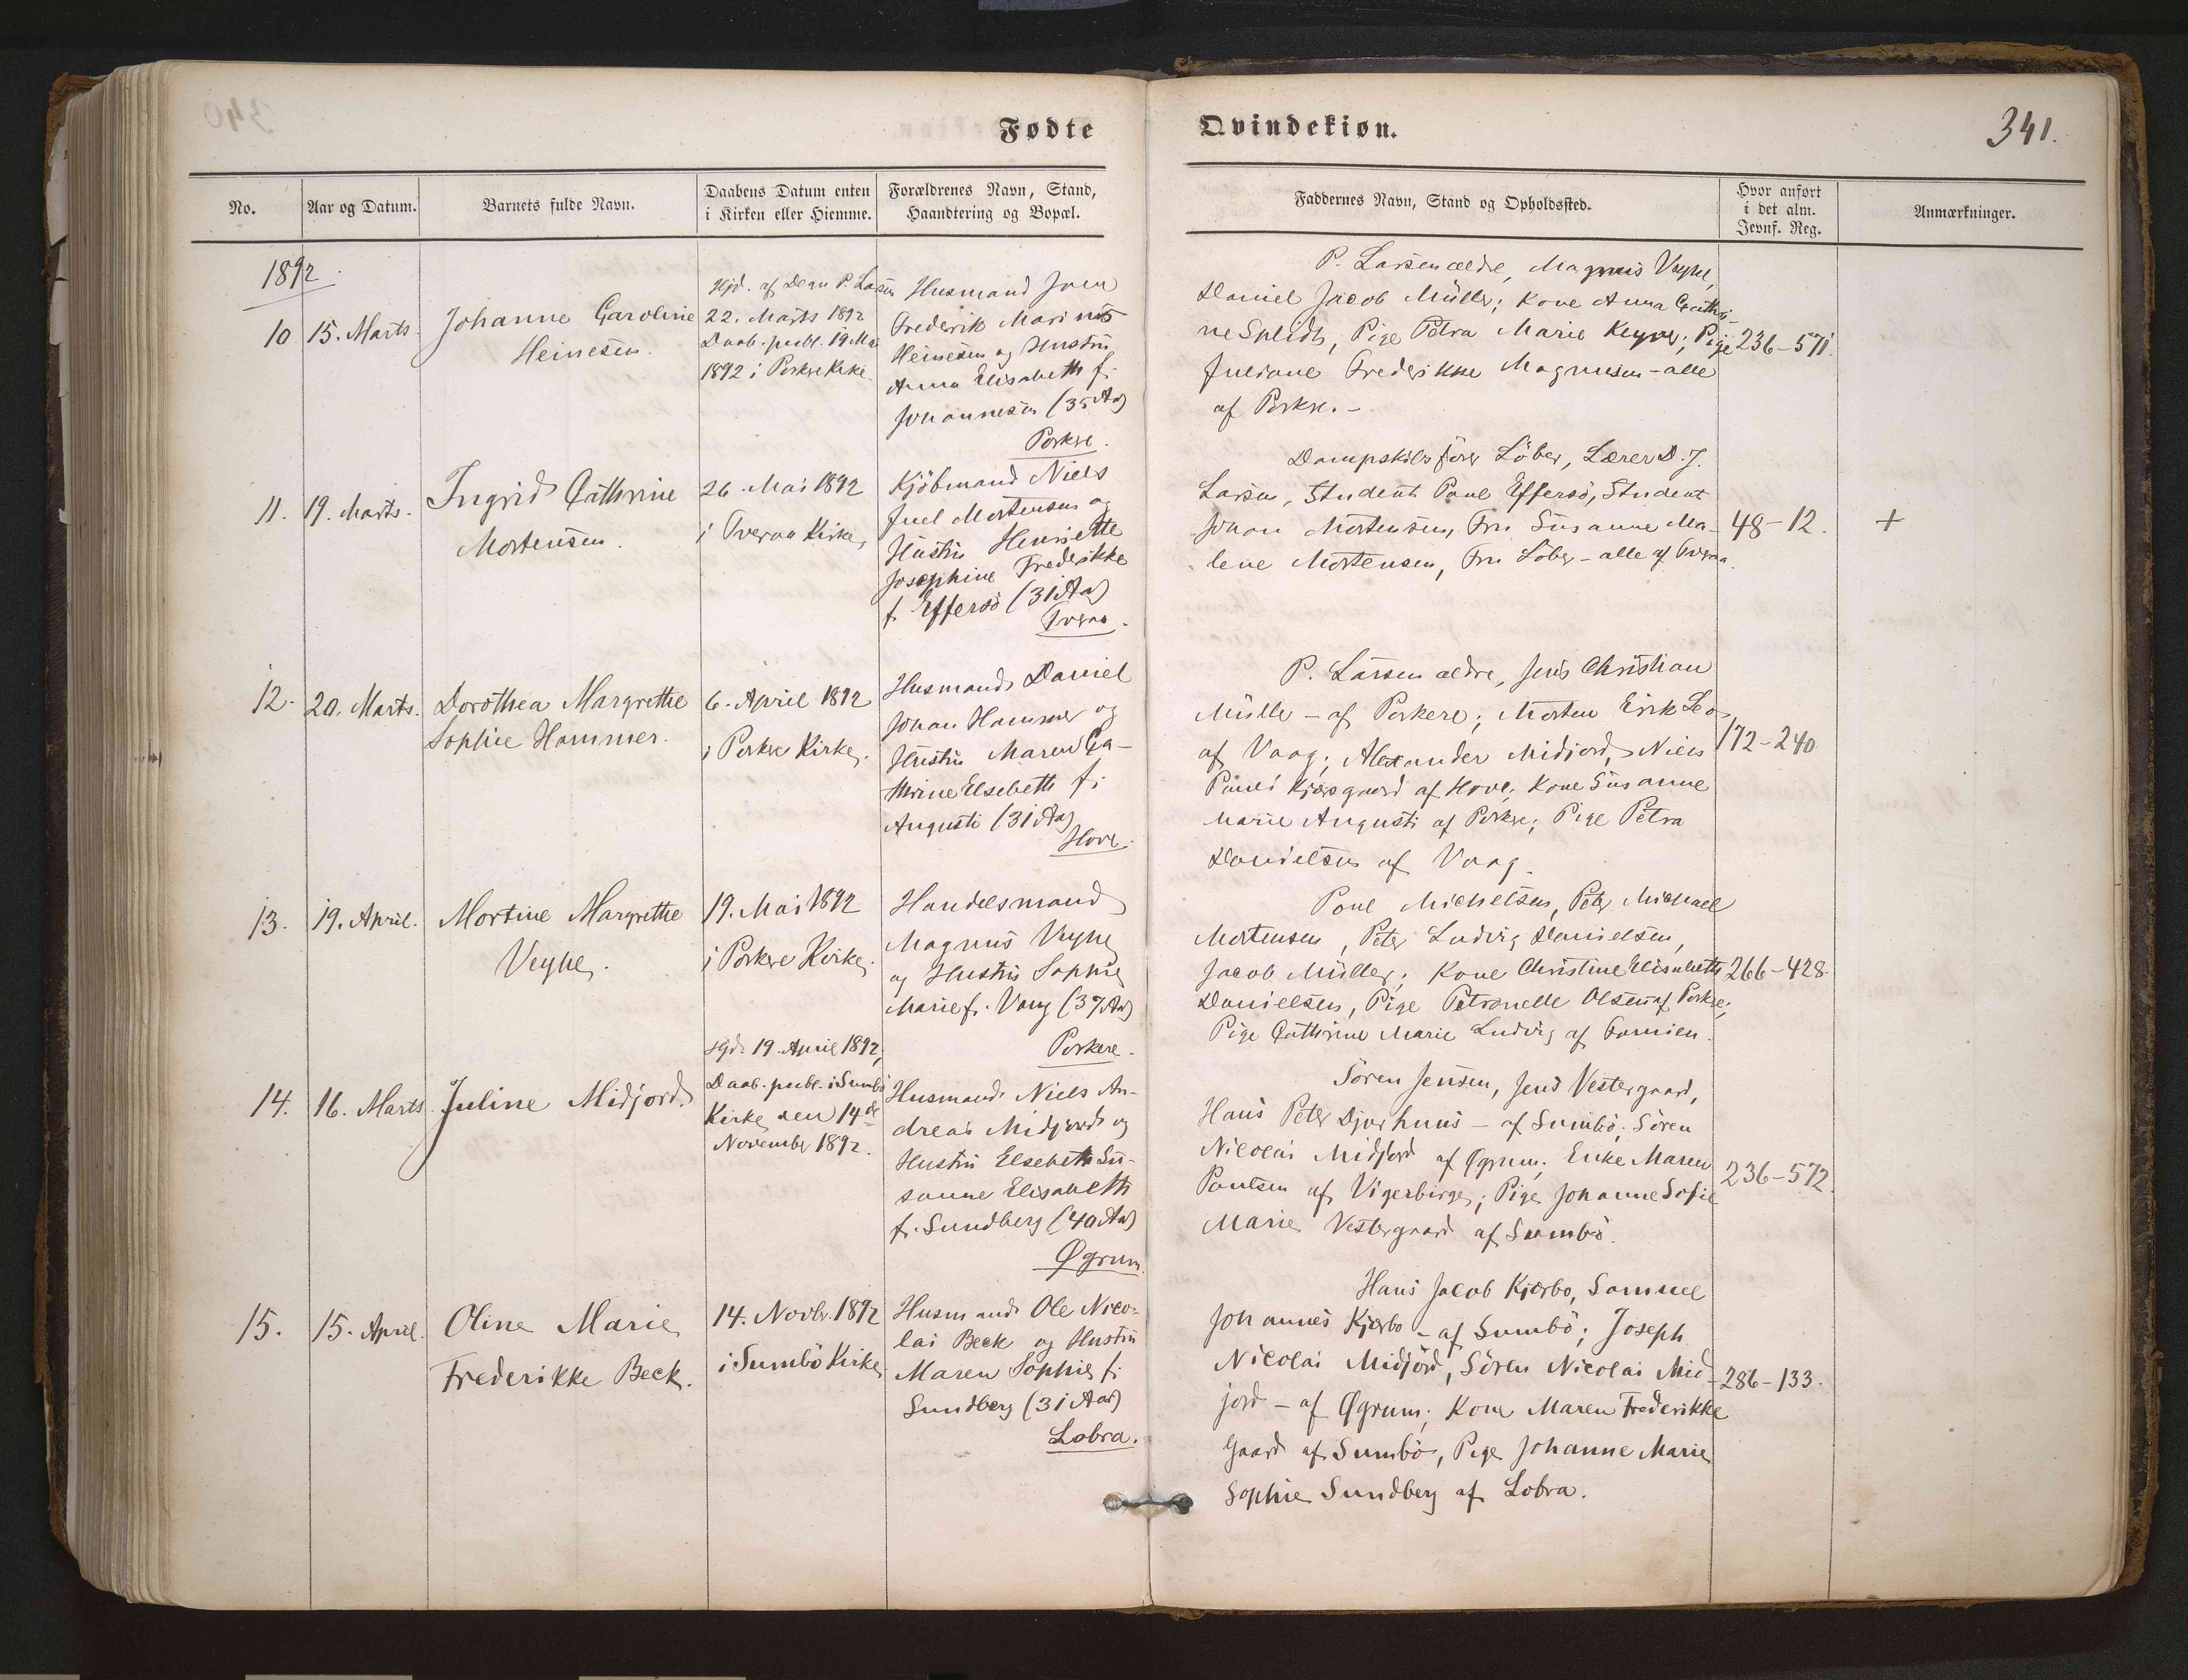 Fødte
Qvindekiøn.
341.
No.
Aar og Datum.
Barnets fulde Navn.
Daabens Datum enten
i Kirken eller Hiemme.
Forældrenes Navn, Stand,
Haandtering og Bopæl.
Faddernes Navn, Stand og Opholdssted.
Hvor anført
i det alm.
Jevnf. Reg.
Anmærkninger.
1892
10
15. Marts.
Johanne Caroline
Heinesen.
Hjd. af P. Larsen
22. Marts 1892
Daab. publ. 19 Mai
1892 i Porkere Kirke.
Husmand Joen
Frederik Marinus
Heinesen og Hustru
Anna Elisabeth f.
Johannesen (35 Aar)
Porkere.
P. Larsen ældre, Magnus Veyhe,
Daniel Jacob Müller; Kone Anna Cathri-
ne Splidt, Pige Petra Marie ; Pige
Juliane Frederikke Magnusen - alle
af Porkere. -
236-571.
11.
19. Marts.
Ingrid Cathrine
Mortensen.
26. Mai 1892
i Tveraa Kirke,
Kjöbmand Niels
Juel Mortensen og
Hustru Henriette
Josephine Frederikke
f. Effersö (31 Aar)
Tveraa.
Dampskibsfører Löber, Lærer D. J.
Larsen, Student Poul Effersö, Student
Johan Mortensen, Fru Susanne Ma-
lene Mortensen, Fru Löber - alle af Tveraa.
48-12.
+
12.
20. Marts.
Dorothea Margrethe
Sophie Hammer.
6. April 1892
i Porkere Kirke.
Husmand Daniel
Johan Hammer og
Hustru Maren Ca-
thrine Elsebeth f.
Augusti (31 Aar)
Hove.
P. Larsen ældre, Jens Christian
Müller - af Porkere; Morten Eirik Leo
af Vaag; Alexander Midjord, Niels
Pauli Kjærsgaard af Hove; Kone Susanne
Marie Augusti af Porkere; Pige Petra
Danielsen af Vaag.
172-240
13.
19. April.
Mortine Margrethe
Veyhe.
19. Mai 1892
i Porkere Kirke.
Handelsmand
Magnus Veyhe
og Hustru Sophie
Marie f. Vang (37 Aar)
Porkere.
Poul Michelsen, Peter Michael
Mortensen, Peter Ludvig Danielsen,
Jacob Müller; Kone Christine Elisabeth
Danielsen, Pige Petronelle Olsen af Porkere;
Pige Cathrine Marie Ludvig af Famien.
266-428.
14.
16. Marts.
Juline Midjord.
Hjd. 19 April 1892,
Daab. publ. i Sumbö
Kirke den 14de
November 1892.
Husmand Niels An-
dreas Midjord og
Hustru Elsebeth Su-
sanne Elisabeth
f. Sundberg (40 Aar)
Øgrum.
Sören Jensen, Jens Vestergaard,
Hans Peter Djurhuus - af Sumbö; Sören
Nicolai Midjord af Øgrum; Enke Maren
Poulsen af Vigerbirge; Pige Johanne Sofie
Marie Vestergaard af Sumbö.
236-572.
15.
15. April.
Oline Marie
Frederikke Beck.
14. Novbr. 1892
i Sumbö Kirke
Husmand Ole Nico-
lai Beck og Hustru
Maren Sophie f.
Sundberg (31 Aar)
Lobra.
Hans Jacob Kjærbo, Samuel
Johannes Kjærbo - af Sumbö; Joseph
Nicolai Midjord, Sören Nicolai Mid-
jord - af Øgrum; Kone Maren Frederikke
Gaard af Sumbö, Pige Johanne Marie
Sophie Sundberg af Lobra.
286-133.